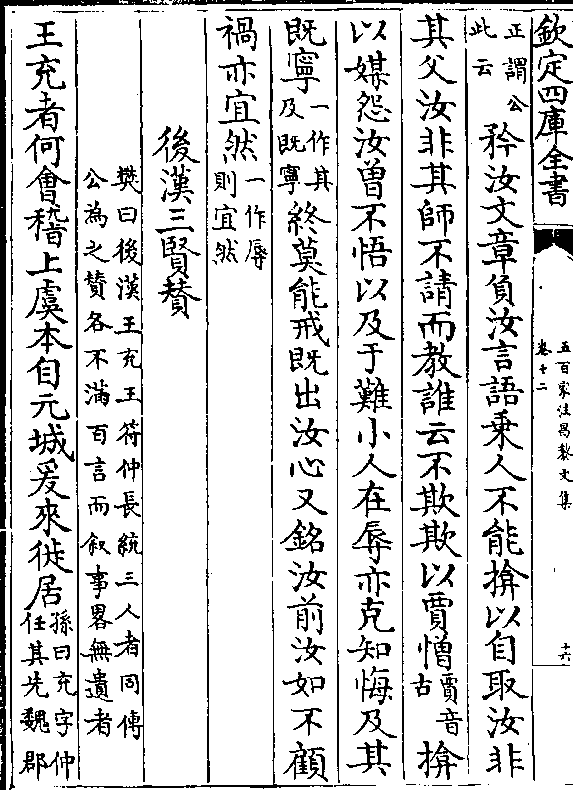 欽定四庫全書
五百家注昌黎文集
卷十二
十六
正謂公此云矜汝文章負汝言語乗人不能揜以自取汝非
其父汝非其師不請而教誰云不欺欺以賈憎賈音古揜
以媒怨汝曾不悟以及于難小人在辱亦克知悔及其
既寧一作其及既寧終莫能戒既出汝心又銘汝前汝如不顧
禍亦宜然一作辱則宜然
後漢三賢賛
樊曰後漢王充王符仲長統三人者同傳
公為之賛各不滿百言而叙事畧無遺者
王充者何會稽上虞本自元城爰來徙居孫曰充字仲任其先魏郡